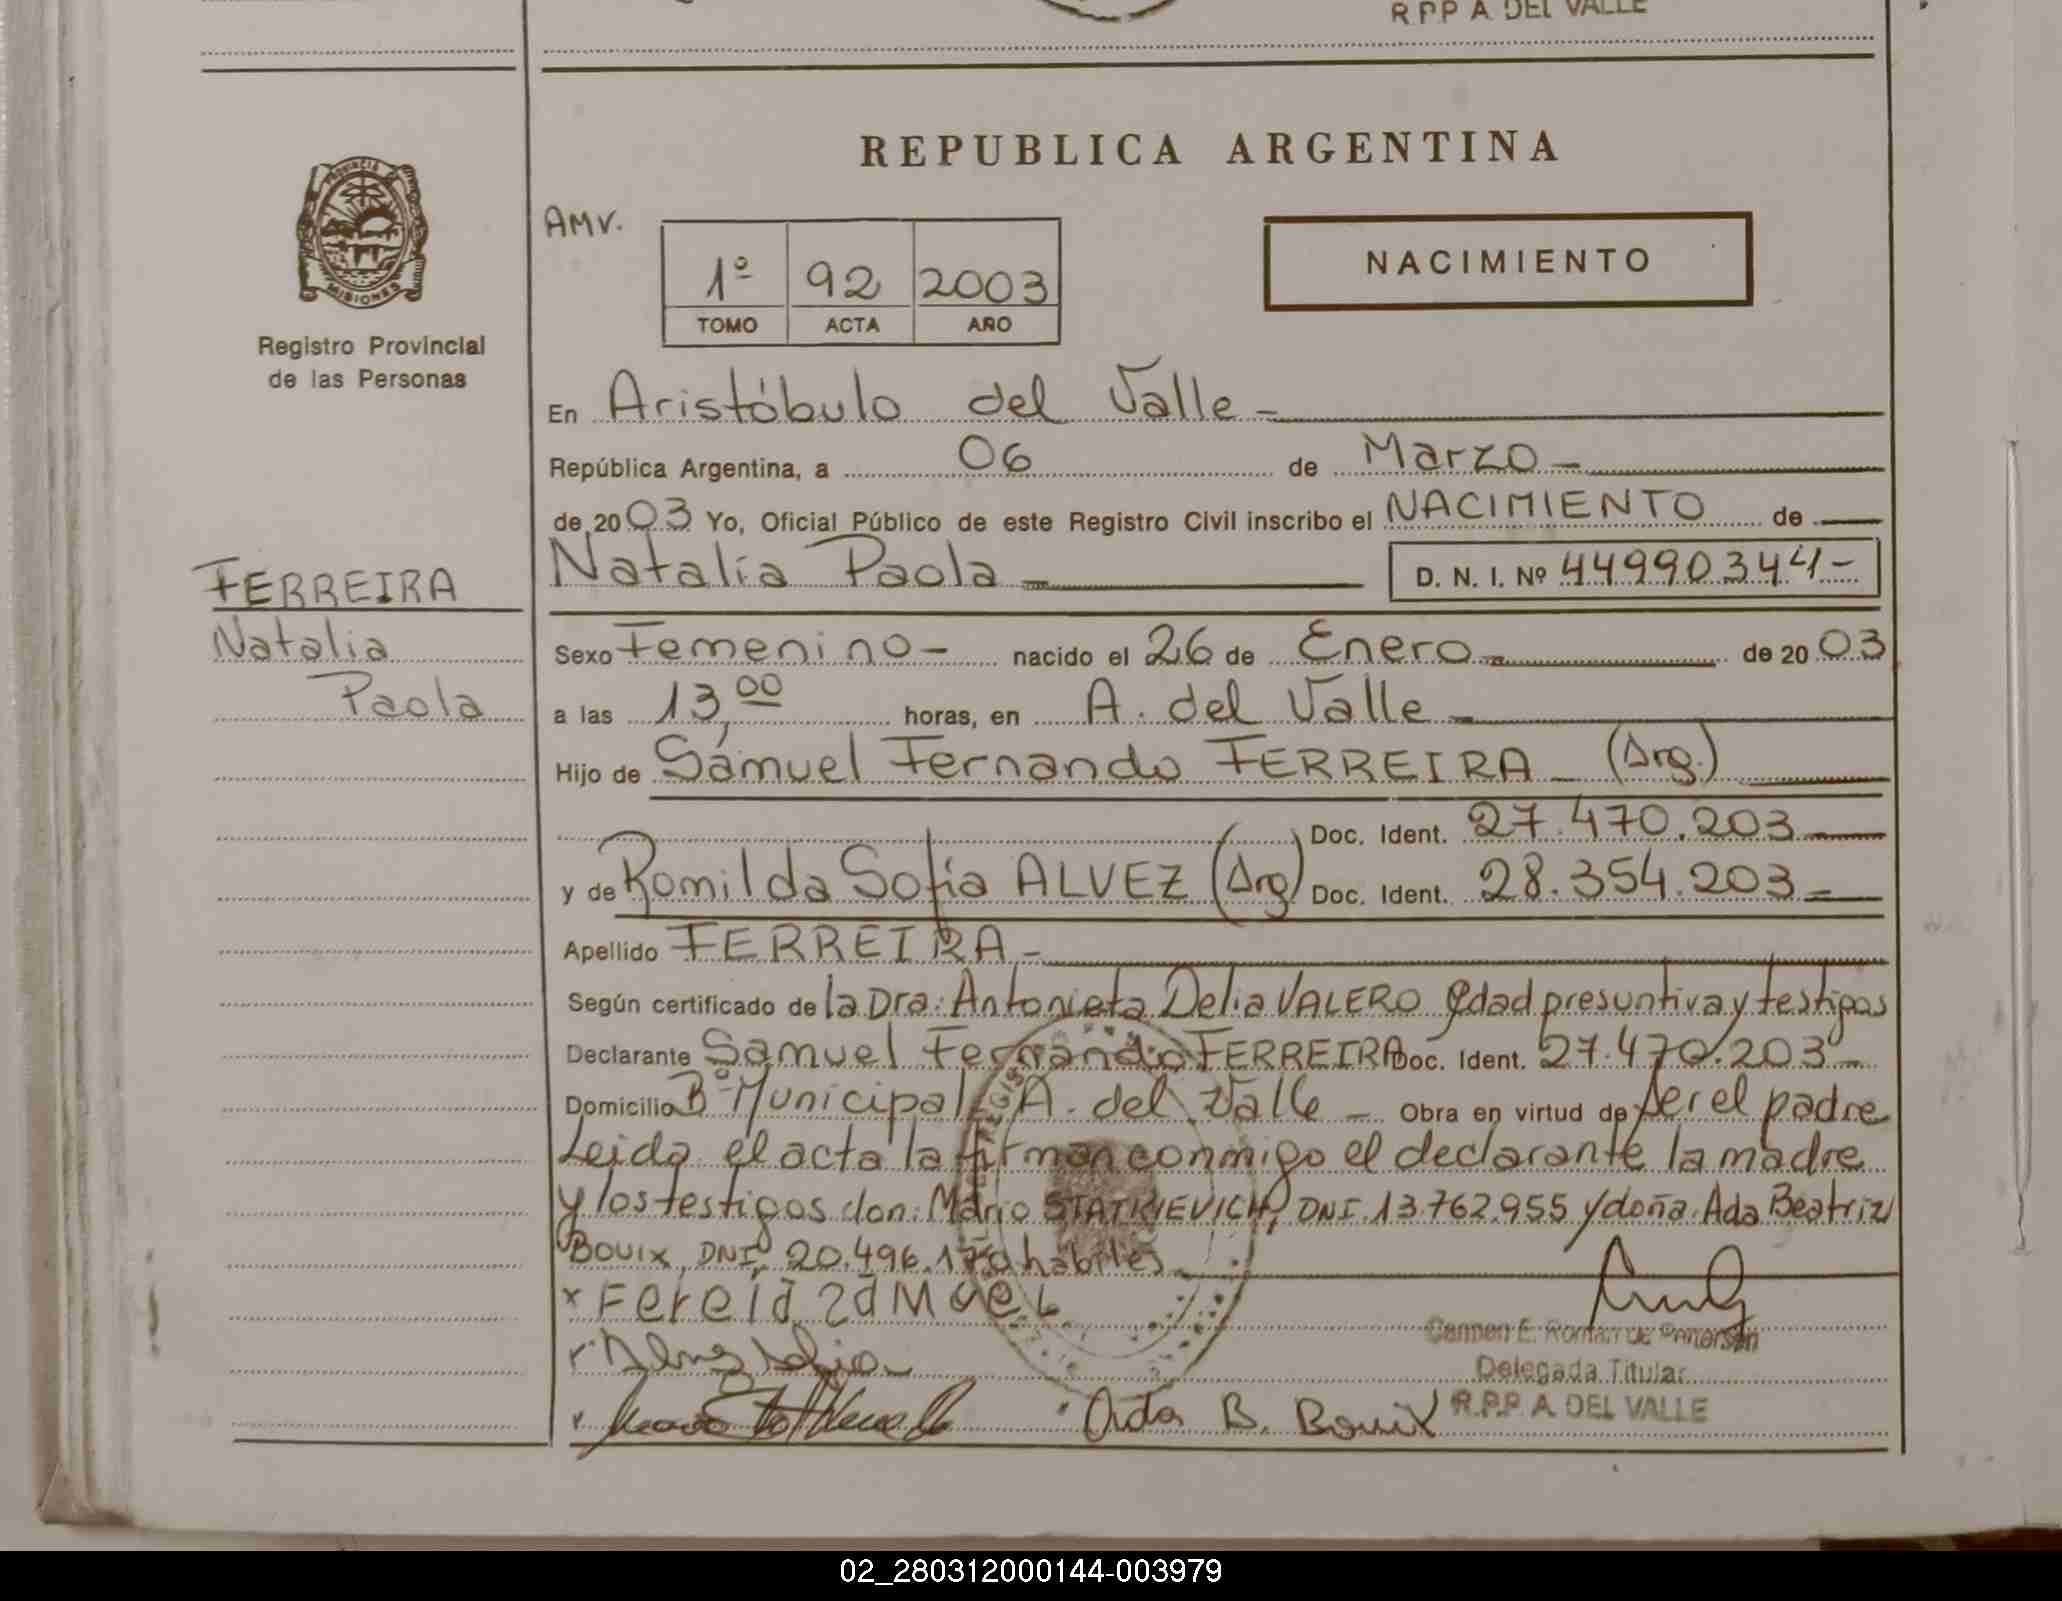 R.P.P A. DEL VALLE
REPUBLICA ARGENTINA
PROVINCIA DE
MISIONES
Registro Provincial
de las Personas
AMV.
1º 92 2003
TOMO ACTA AÑO
NACIMIENTO
En Aristóbulo del Valle-
República Argentina, a 06 de Marzo-
de 2003 Yo, Oficial Público de este Registro Civil inscribo el NACIMIENTO de
Natalia Paola- D. N. I. Nº 44990344-
FERREIRA
Natalia
Paola
Sexo Femenino- nacido el 26 de Enero- de 2003
a las 13,00 horas, en A. del Valle-
Hijo de Sámuel Fernando FERREIRA- (Arg.)
Doc. Ident. 27.470.203-
y de Romilda Sofia ALVEZ (Arg) Doc. Ident. 28.354.203-
Apellido FERREIRA-
Según certificado de la Dra: Antonieta Delia VALERO edad presuntiva y testigos
Declarante Samuel Fernando FERREIRA Doc. Ident. 27.470.203-
Domicilio Bº Municipal A. del Valle- Obra en virtud de ser el padre
Leida el acta la firman conmigo el declarante la madre
y los testigos don: Mario STATKIEVICH, DNI. 13.762.955 y doña Ada Beatriz
BOUIX, DNI. 20.496. habiles
x Fereia 2aMuel
Alvez Sofia
Carmen E. Roman de
Delegada Titular
R.P.P. A. DEL VALLE
Aida B. Bouix
02_280312000144-003979